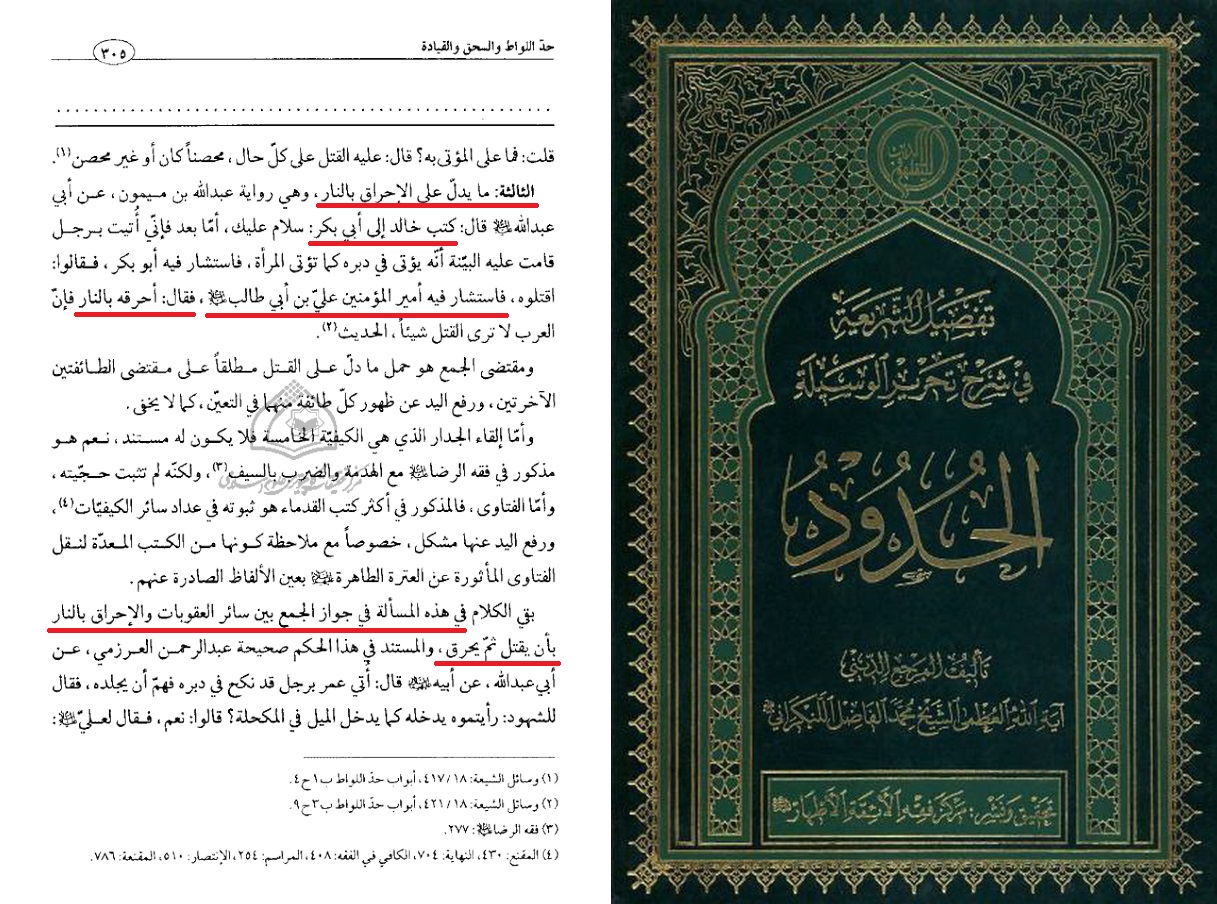 حدّ اللواط والسحق والقيادة
٣٠٥
قلت: فما على المؤتى به؟ قال: عليه القتل على كلّ حال، محصناً كان أو غير محصن(١).
الثالثة: ما يدلّ على الإحراق بالنار، وهي رواية عبدالله بن ميمون، عن أبي
عبدالله قال: كتب خالد إلى أبي بكر: سلام عليك، أمّا بعد فإنّي أُتيت برجل
قامت عليه البيّنة أنّه يؤتى في دبره كما تؤتى المرأة، فاستشار فيه أبو بكر، فقالوا:
اقتلوه، فاستشار فيه أمير المؤمنين عليّ بن أبي طالب، فقال: أحرقه بالنار فإنّ
العرب لا ترى القتل شيئاً، الحديث(٢).
ومقتضى الجمع هو حمل ما دلّ على القتل مطلقاً على مقتضى الطائفتين
الآخرتين، ورفع اليد عن ظهور كلّ طائفة منهما في التعيّن، كما لا يخفى.
وأمّا إلقاء الجدار الذي هي الكيفيّة الخامسة فلا يكون له مستند، نعم هو
مذكور في فقه الرضا مع الهدمة والضرب بالسيف(٣)، ولكنّه لم تثبت حجّيته،
وأمّا الفتاوى، فالمذكور في أكثر كتب القدماء هو ثبوته في عداد سائر الكيفيّات(٤)،
ورفع اليد عنها مشكل، خصوصاً مع ملاحظة كونها من الكتب المعدّة لنقل
الفتاوى المأثورة عن العترة الطاهرة بعين الألفاظ الصادرة عنهم.
بقي الكلام في هذه المسألة في جواز الجمع بين سائر العقوبات والإحراق بالنار
بأن يقتل ثمّ يحرق، والمستند في هذا الحكم صحيحة عبدالرحمن العرزمي، عن
أبي عبدالله، عن أبيه قال: أُتي عمر برجل قد نكح في دبره فهمّ أن يجلده، فقال
للشهود: رأيتموه يدخله كما يدخل الميل في المكحلة؟ قالوا: نعم، فقال لعليّ:
(١) وسائل الشيعة: ١٨/ ٤١٧، أبواب حدّ اللواط ب١ ح٤.
(٢) وسائل الشيعة: ١٨/ ٤٢١، أبواب حدّ اللواط ب٣ ح٩.
(٣) فقه الرضا: ٢٧٧.
(٤) المقنع: ٤٣٠، النهاية: ٧٠٤، الكافي في الفقه: ٤٠٨، المراسم: ٢٥٤، الإنتصار: ٥١٠، المقنعة: ٧٨٦.
تفصيل الشريعة
في شرح تحرير الوسيلة
الحدود
تأليف المرجع الديني
آية الله العظمى الشيخ محمد الفاضل اللنكراني
تحقيق ونشر: مركز فقه الأئمة الأطهار